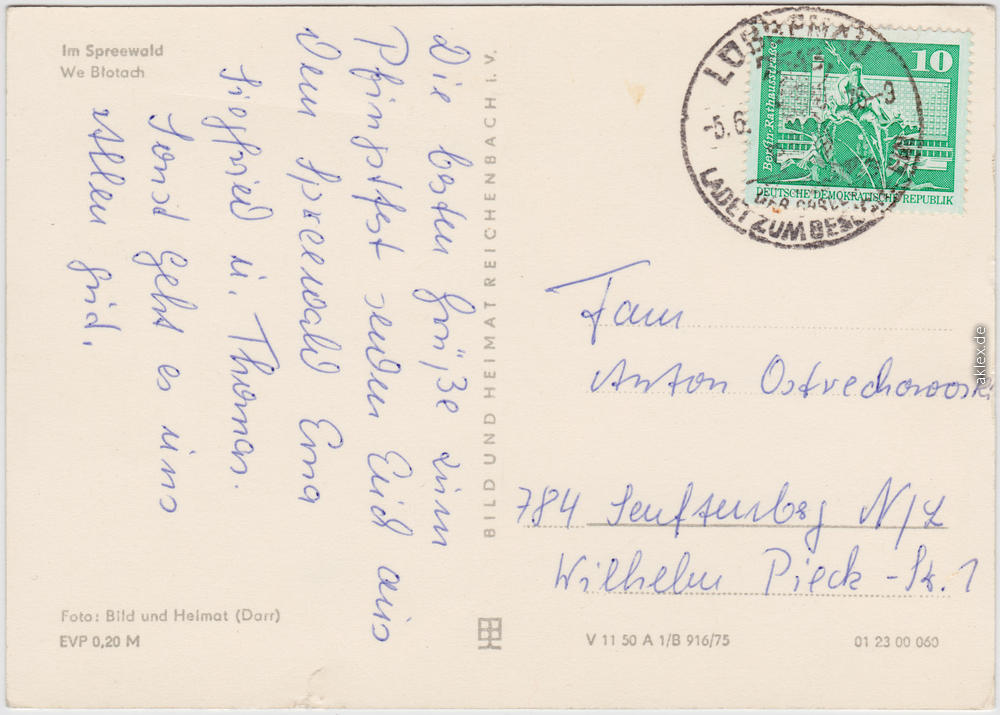 Im Spreewald
We Błotach
Die besten Grüße zum
Pfingstfest senden Euch aus
dem Spreewald Erna
Siegfried u. Thomas.
Sonst geht es uns
Allen gut.
BILD UND HEIMAT REICHENBACH I. V.
10
Berlin-Rathausstraße
DEUTSCHE DEMOKRATISCHE REPUBLIK
-5.6.
LADET ZUM
Fam
Anton Ostrechowski
784 Senftenberg N/L
Wilhelm Pieck-Str. 1
Foto: Bild und Heimat (Darr)
EVP 0,20 M
V 11 50 A 1/B 916/75
01 23 00 060
aklex.de